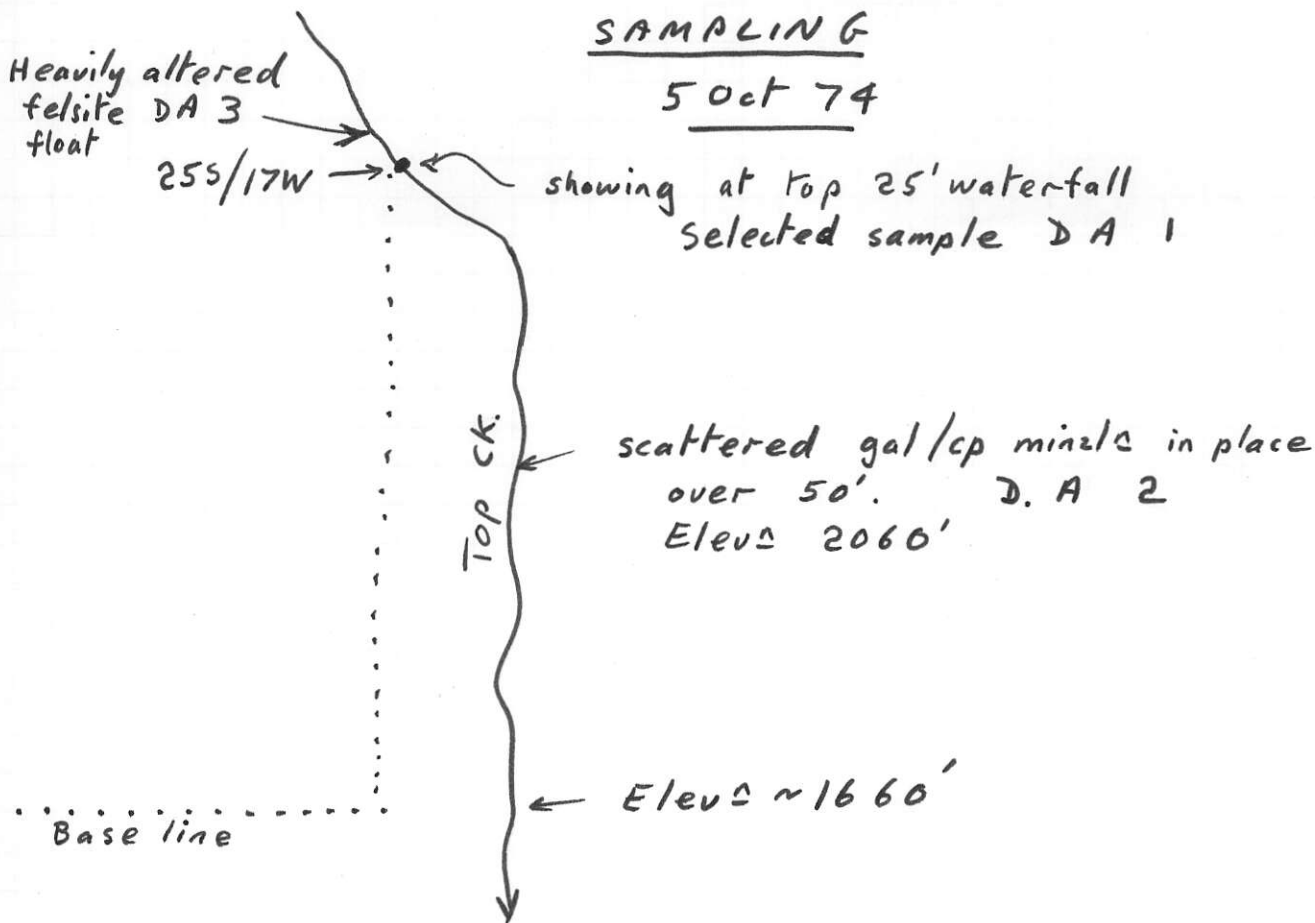 SAMPLING
5 Oct 74
Heavily altered
felsite DA 3
float
25S/17W
showing at top 25' waterfall
selected sample DA 1
Top Ck.
scattered gal/cp minzln in place
over 50'. D.A 2
Elevn 2060'
Elevn ~1660'
Base line